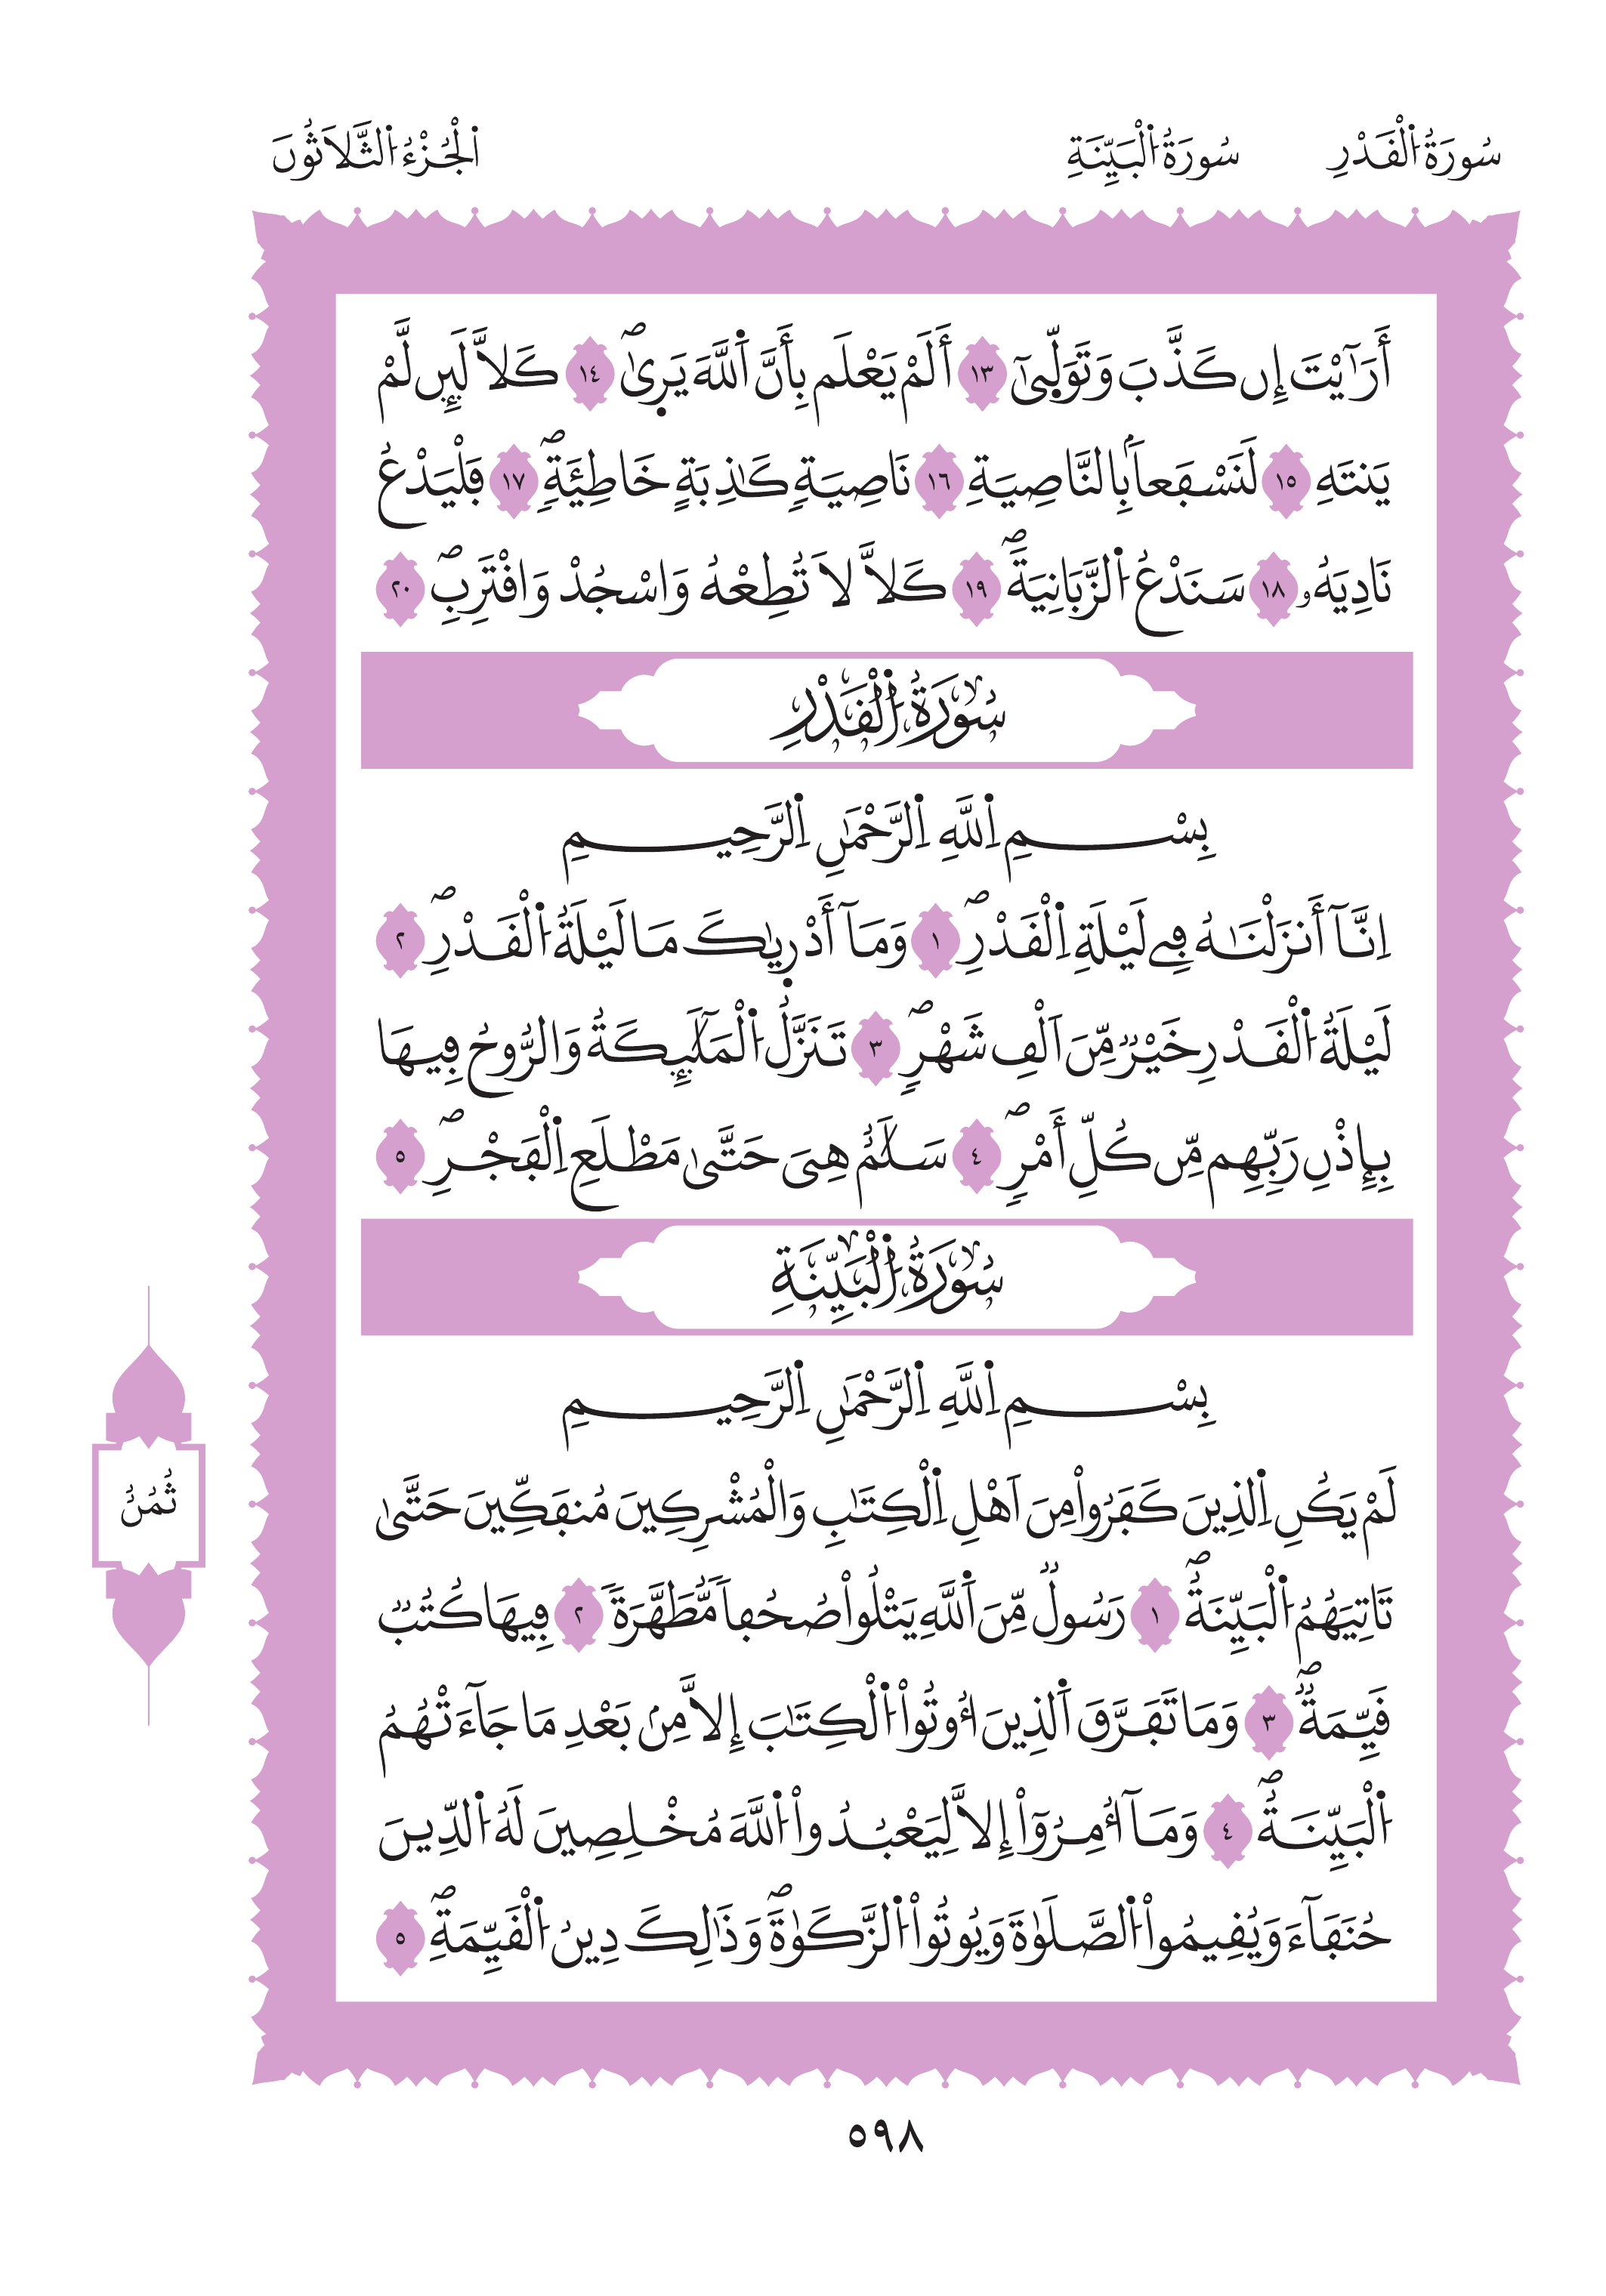 سُورَةُ اُ۬لْقَدْرِ سُورَةُ اُ۬لْبَيِّنَةِ اَ۬لْجُزْءُ اُ۬لثَّلَاثُونَ
أَرَٰٓيْتَ إِن كَذَّبَ وَتَوَلّ۪ىٰٓ ١٣ أَلَمْ يَعْلَم بِأَنَّ اَ۬للَّهَ يَر۪ىٰۖ ١٤ كَلاَّ لَئِن لَّمْ
يَنتَهِ ١٥ لَنَسْفَعاَۢ بِالنَّاصِيَةِ ١٦ نَاصِيَةٖ كَٰذِبَةٍ خَاطِئَةٖۖ ١٧ فَلْيَدْعُ
نَادِيَهُۥ ١٨ سَنَدْعُ اُ۬لزَّبَانِيَةَۖ ١٩ كَلاَّ لاَ تُطِعْهُ وَاسْجُدْ وَاقْتَرِبۖ ٢٠
سُورَةُ اُ۬لْقَدْرِ
بِسْمِ اِ۬للَّهِ اِ۬لرَّحْمَٰنِ اِ۬لرَّحِيمِ
اِنَّآ أَنزَلْنَٰهُ فِے لَيْلَةِ اِ۬لْقَدْرِۖ ١ وَمَآ أَدْر۪يٰكَ مَا لَيْلَةُ اُ۬لْقَدْرِۖ ٢
لَيْلَةُ اُ۬لْقَدْرِ خَيْرٞ مِّنَ اَلْفِ شَهْرٖۖ ٣ تَنَزَّلُ اُ۬لْمَلَٰٓئِكَةُ وَالرُّوحُ فِيهَا
بِإِذْنِ رَبِّهِم مِّن كُلِّ أَمْرٖۖ ٤ سَلَٰمٌ هِىَ حَتَّىٰ مَطْلَعِ اِ۬لْفَجْرِۖ ٥
سُورَةُ اُ۬لْبَيِّنَةِ
بِسْمِ اِ۬للَّهِ اِ۬لرَّحْمَٰنِ اِ۬لرَّحِيمِ
لَمْ يَكُنِ اِ۬لذِينَ كَفَرُواْ مِنَ اَهْلِ اِ۬لْكِتَٰبِ وَالْمُشْرِكِينَ مُنفَكِّينَ حَتَّىٰ
تَاتِيَهُمُ اُ۬لْبَيِّنَةُۖ ١ رَسُولٞ مِّنَ اَ۬للَّهِ يَتْلُواْ صُحُفاٗ مُّطَهَّرَةٗ ٢ فِيهَا كُتُبٞ
قَيِّمَةٞۖ ٣ وَمَا تَفَرَّقَ اَ۬لذِينَ أُوتُواْ اُ۬لْكِتَٰبَ إِلاَّ مِنۢ بَعْدِ مَا جَآءَتْهُمُ
اُ۬لْبَيِّنَةُۖ ٤ وَمَآ أُمِرُوٓاْ إِلاَّ لِيَعْبُدُواْ اُ۬للَّهَ مُخْلِصِينَ لَهُ اُ۬لدِّينَ
حُنَفَآءَ وَيُقِيمُواْ اُ۬لصَّلَوٰةَ وَيُوتُواْ اُ۬لزَّكَوٰةَۖ وَذَٰلِكَ دِينُ اُ۬لْقَيِّمَةِۖ ٥
ثُمُنُ
٥٩٨